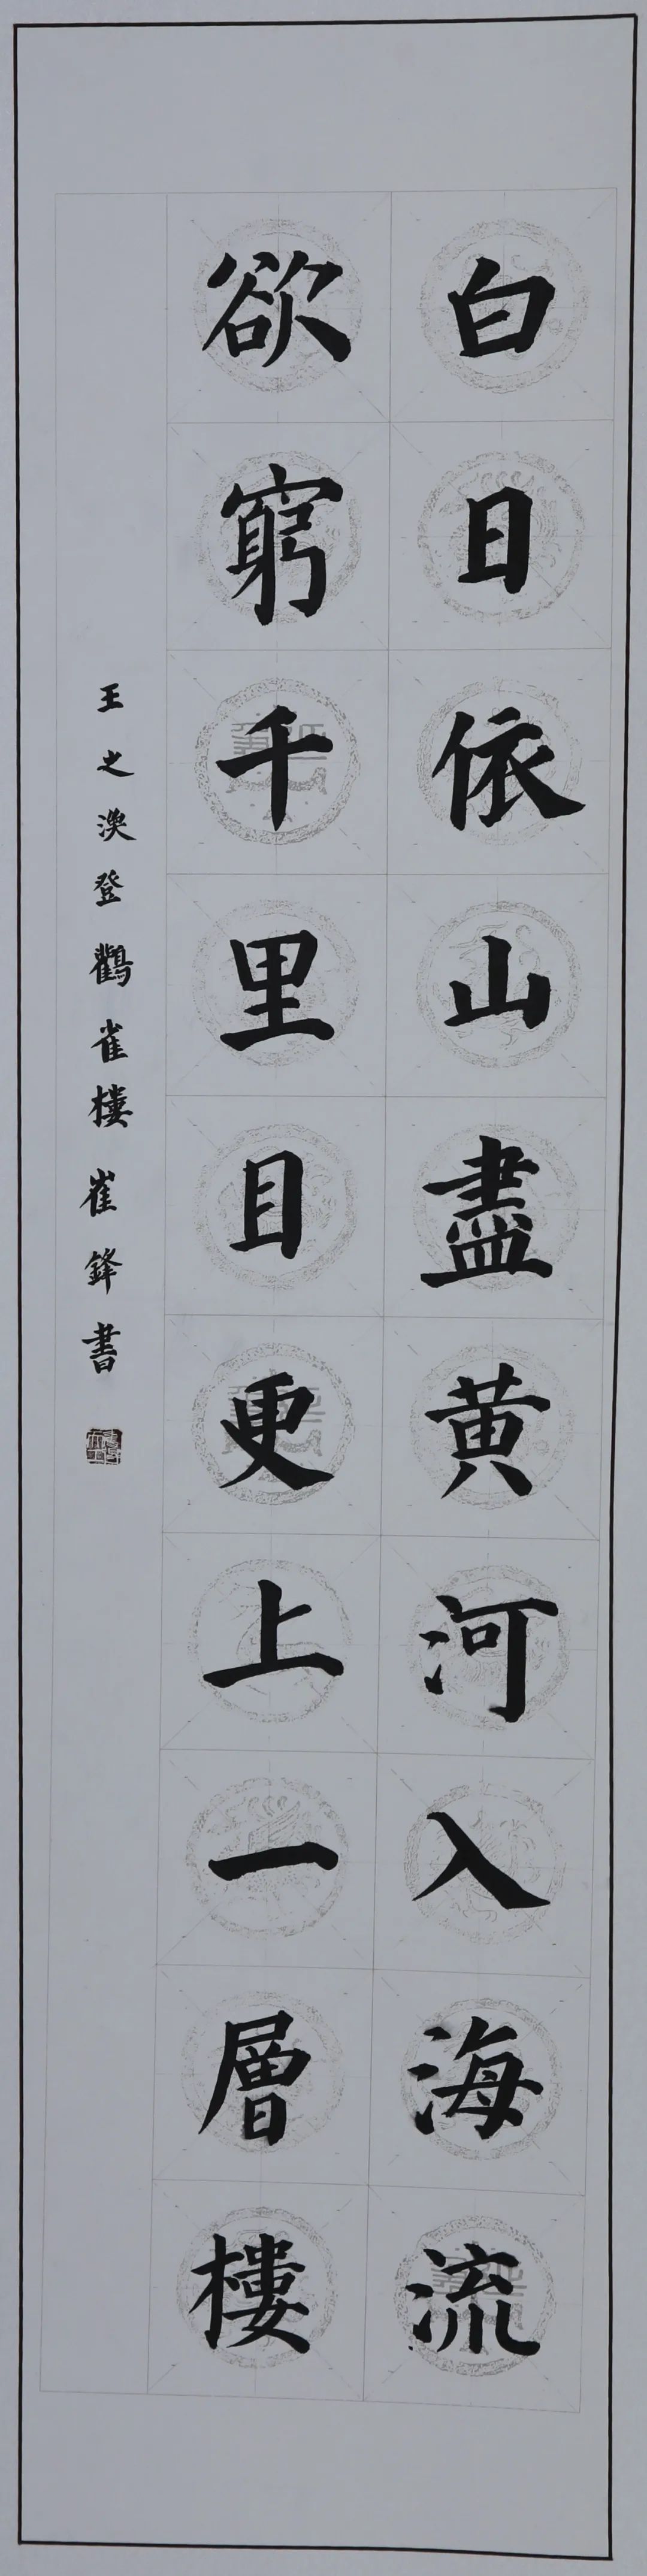 白日依山盡黄河入海流
欲窮千里目更上一層樓
王之渙登鸛雀樓崔鋒書